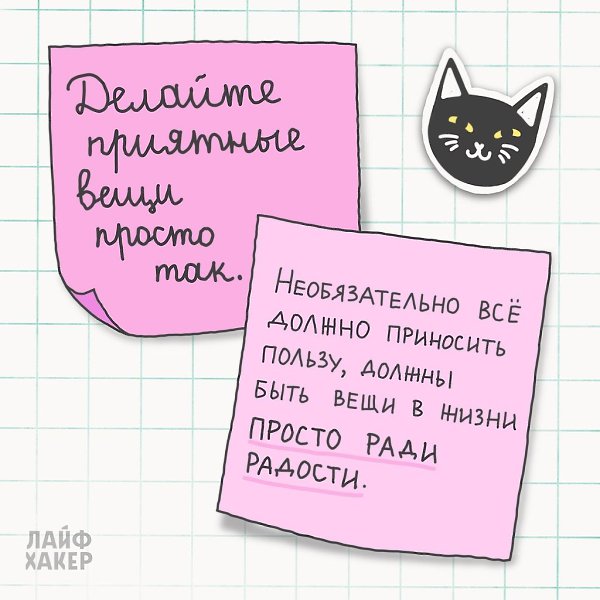 Делайте
приятные
вещи
просто
так.
Необязательно всё
должно приносить
пользу, должны
быть вещи в жизни
просто ради
радости.
ЛАЙФ
ХАКЕР